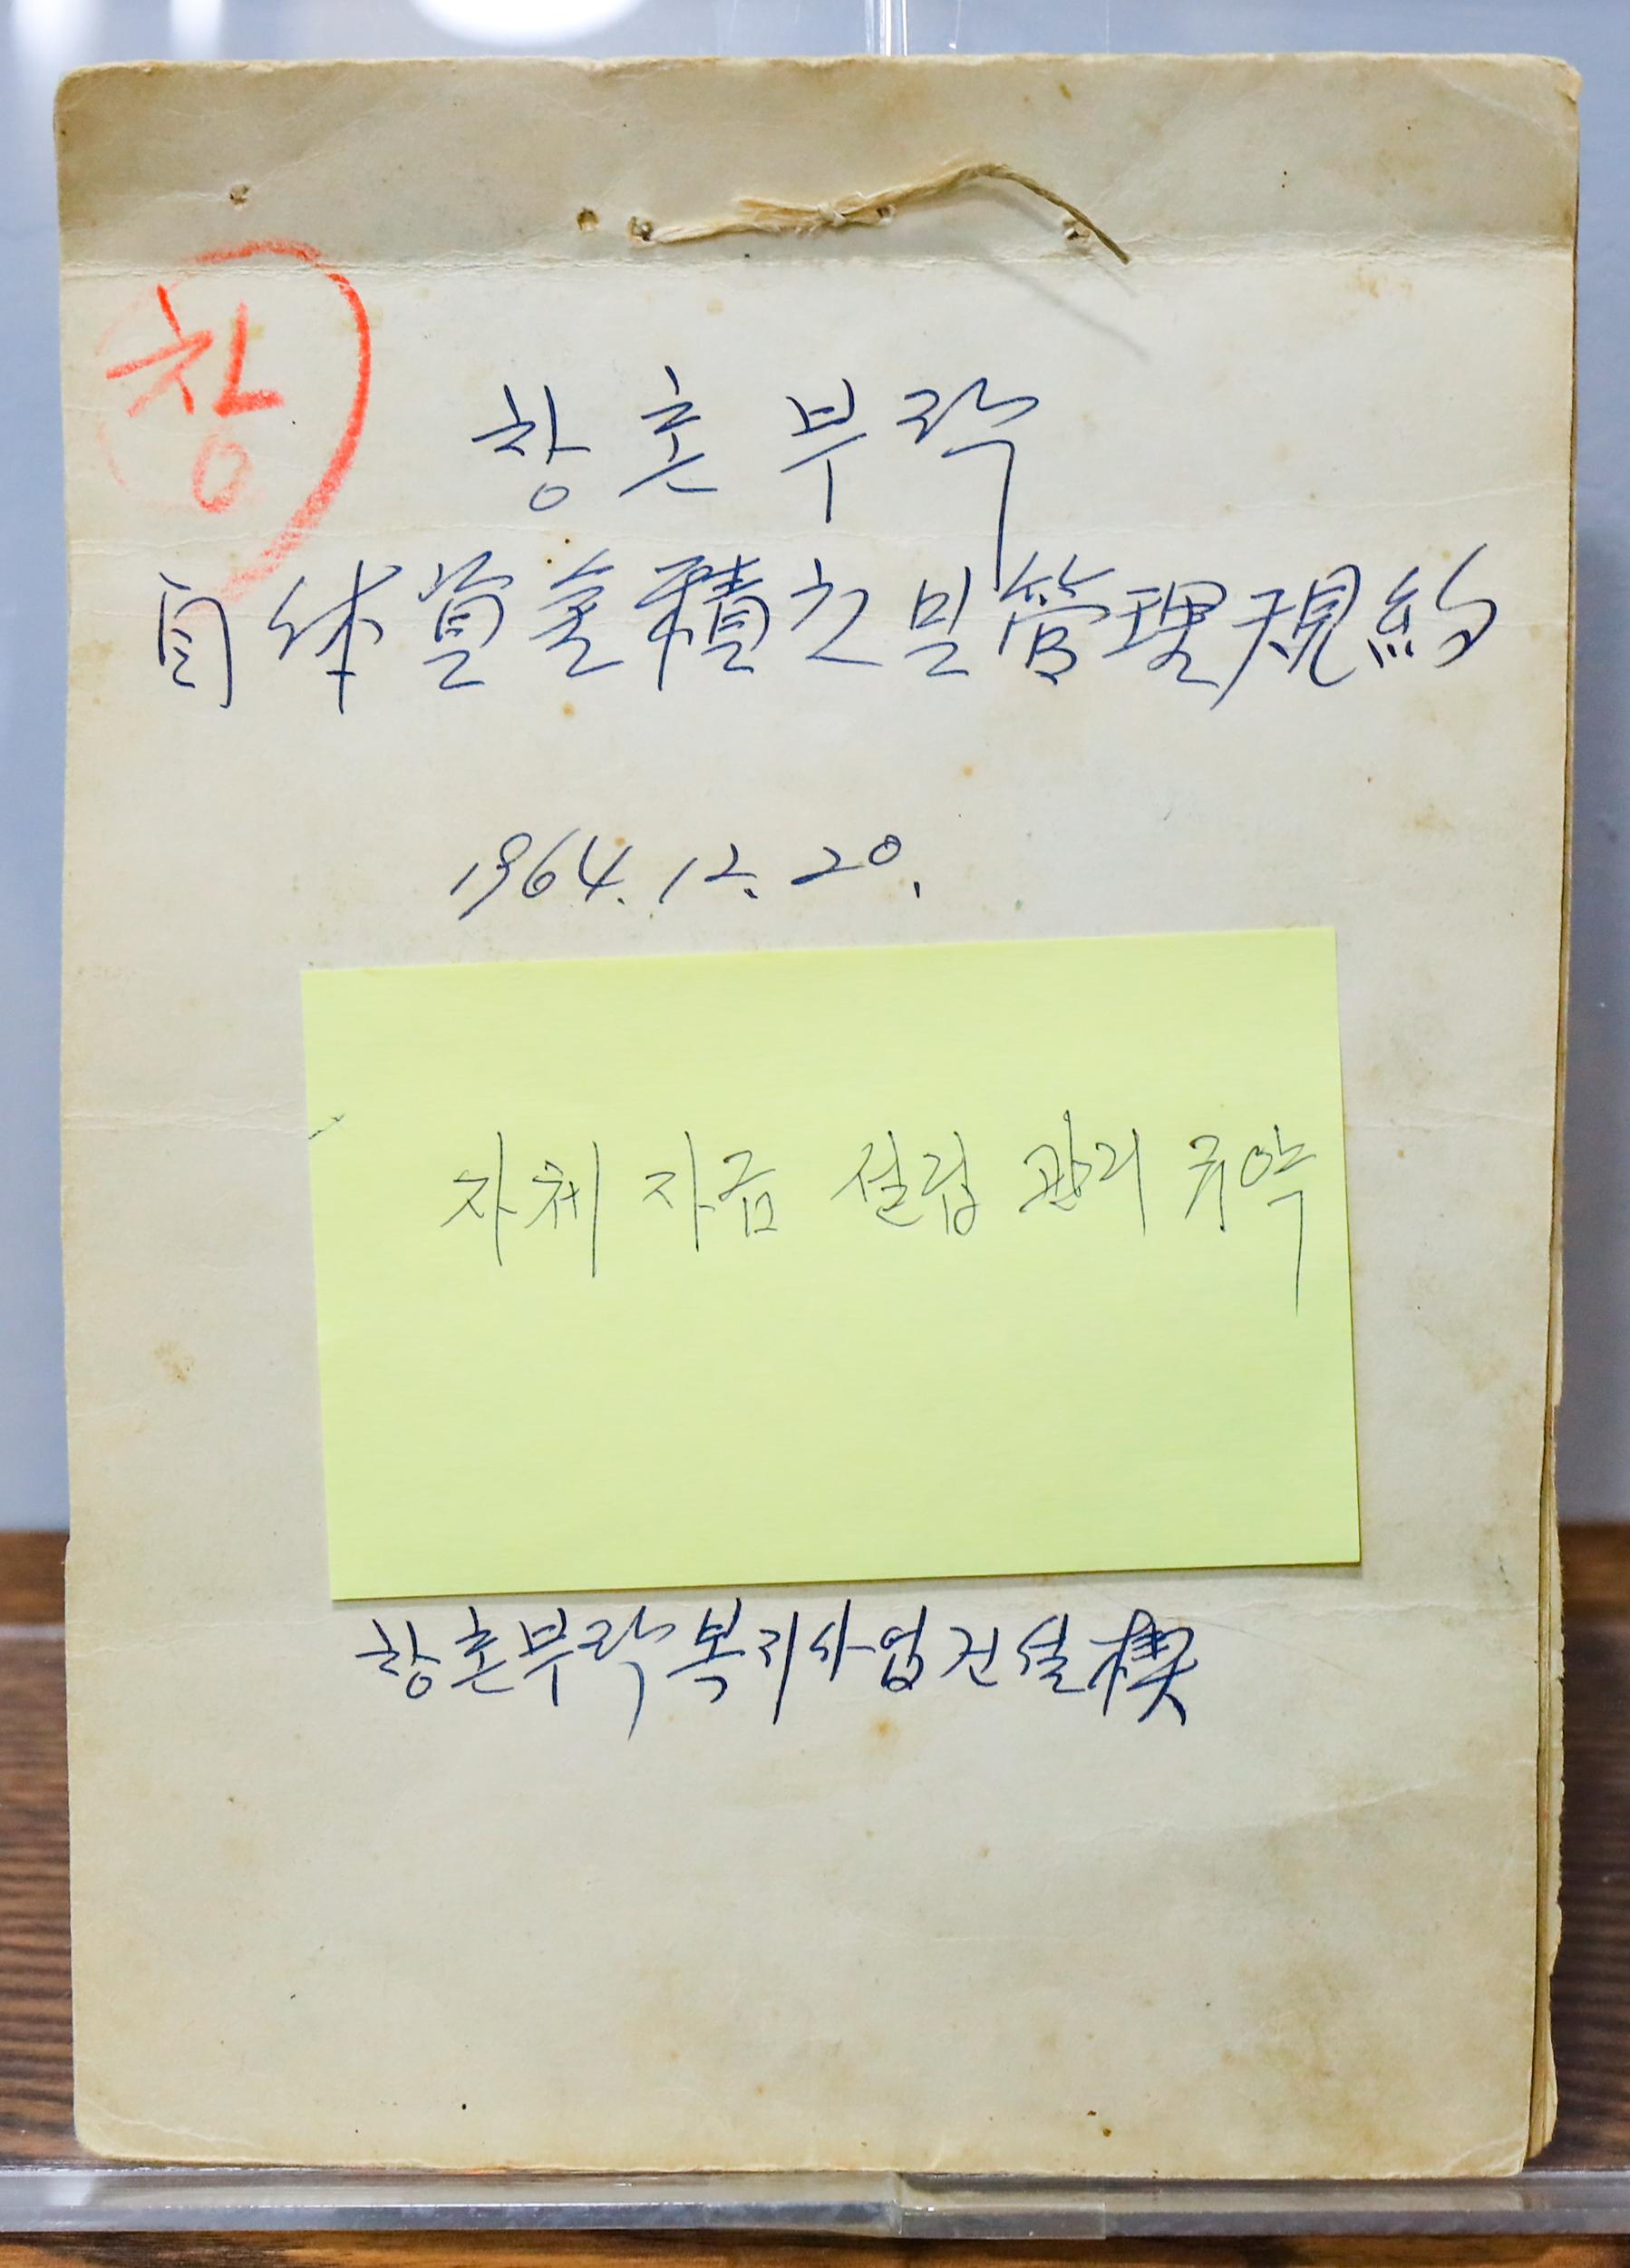 창
창촌부락
自体資金積立및管理規約
1964. 12. 20.
자체 자금 설립 관리 규약
창촌부락복지사업건설契